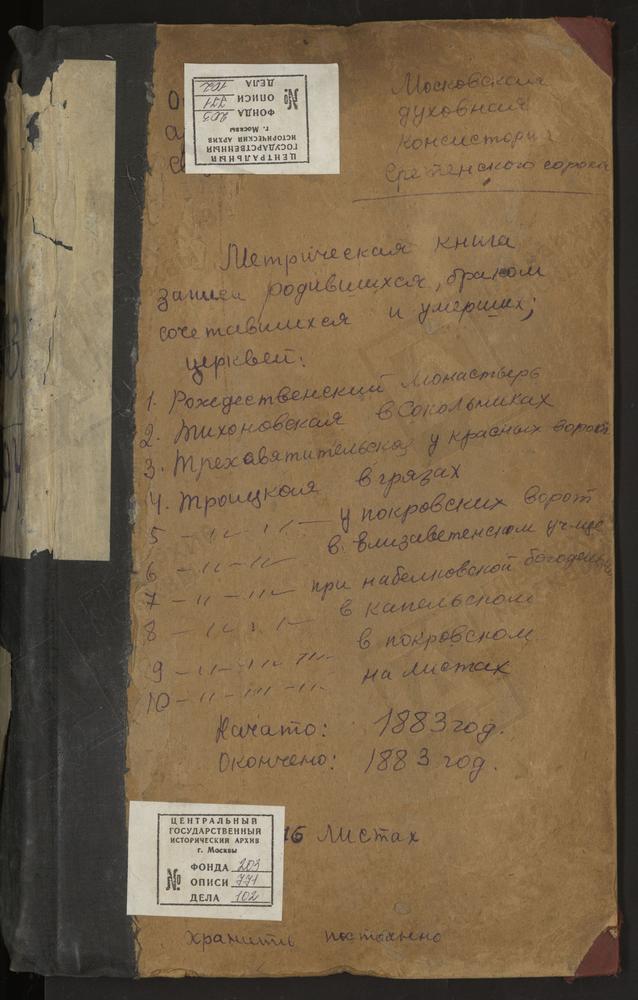 Московская
духовная
консистория
Сретенского сорока
ЦЕНТРАЛЬНЫЙ
ГОСУДАРСТВЕННЫЙ
ИСТОРИЧЕСКИЙ АРХИВ
г. Москвы
№ ФОНДА 203
ОПИСИ 771
ДЕЛА 102
Метрическая книга
записи родившихся, браком
сочетавшихся и умерших;
церквей:
1. Рождественский монастырь
2. Тихоновская в Сокольниках
3. Трехсвятительская у красных ворот
4. Троицкая в грязях
5 — 〃 — 〃 — у покровских ворот
6 — 〃 — 〃 — в Елизаветенском уч-ще
7 — 〃 — 〃 — при набелковской богодельне
8 — 〃 — 〃 — в капельском
9 — 〃 — 〃 — 〃 — в покровском
10 — 〃 — 〃 — 〃 — на листах
Начато: 1883 год.
Окончено: 1883 год.
16 листах
ЦЕНТРАЛЬНЫЙ
ГОСУДАРСТВЕННЫЙ
ИСТОРИЧЕСКИЙ АРХИВ
г. Москвы
№ ФОНДА 203
ОПИСИ 771
ДЕЛА 102
хранить постоянно